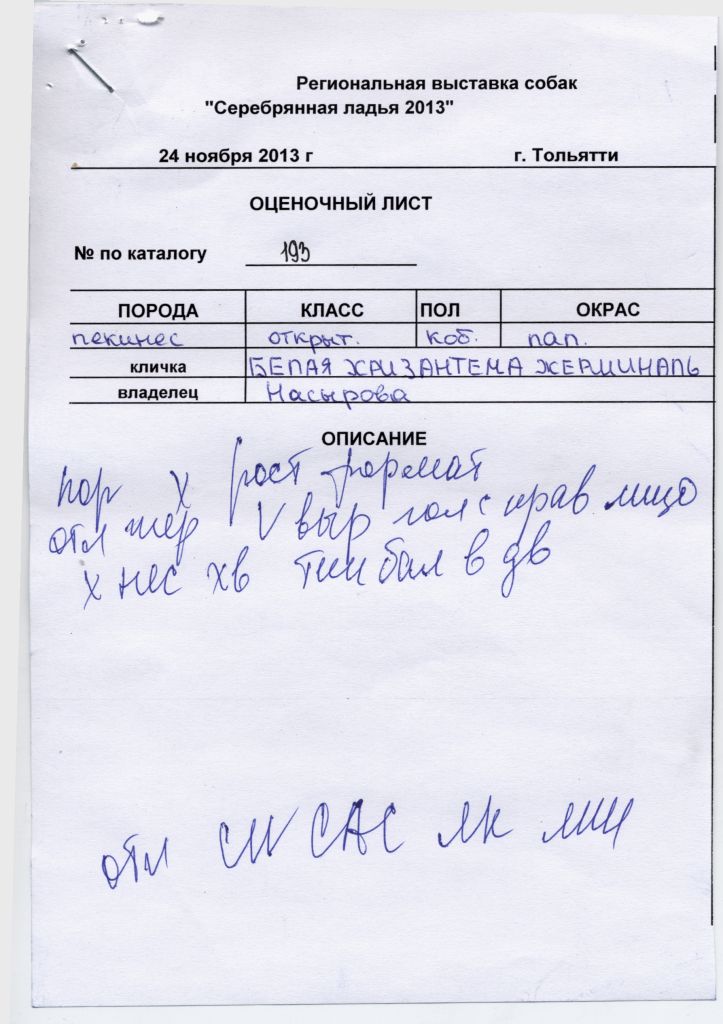 Региональная выставка собак
"Серебрянная ладья 2013"
24 ноября 2013 г г. Тольятти
ОЦЕНОЧНЫЙ ЛИСТ
№ по каталогу 193
ПОРОДА КЛАСС ПОЛ ОКРАС
пекинес открыт. коб. пал.
кличка БЕЛАЯ ХРИЗАНТЕМА ЖЕРМИНАЛЬ
владелец Насырова
ОПИСАНИЕ
пор х рост формат
отл V выр гол с прав лицо
х нес хв тип бал в дв
отл CW CAC ЛК ЛПП